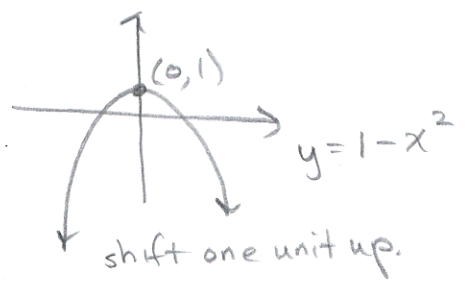 (0,1)
y=1-x²
shift one unit up.